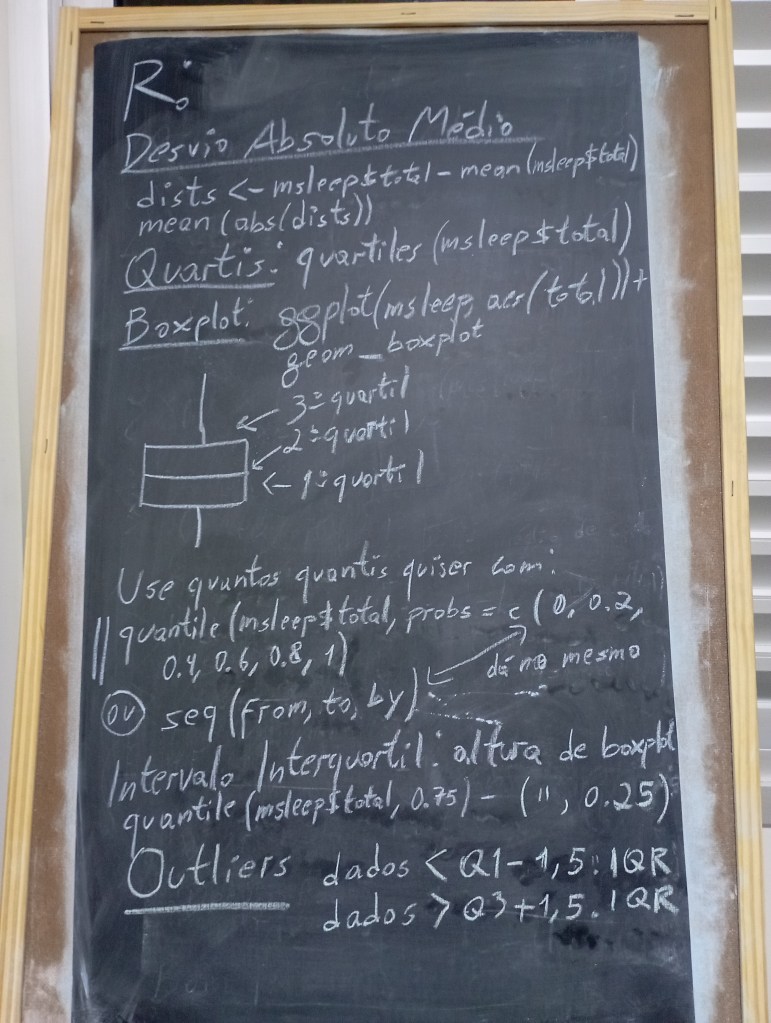 R:
Desvio Absoluto Médio
dists <- msleep$total - mean(msleep$total)
mean (abs(dists))
Quartis: quartiles (msleep$total)
Boxplot: ggplot(msleep, aes(total))+
geom_boxplot
← 3º quartil
← 2º quartil
← 1º quartil
Use quantos quantis quiser com:
quantile (msleep$total, probs = c (0, 0.2,
0.4, 0.6, 0.8, 1)
dá no mesmo
ou seq (from, to, by)
Intervalo Interquartil: altura de boxplot
quantile (msleep$total, 0.75) - (", 0.25)
Outliers dados < Q1 - 1,5 . IQR
dados > Q3 + 1,5 . IQR